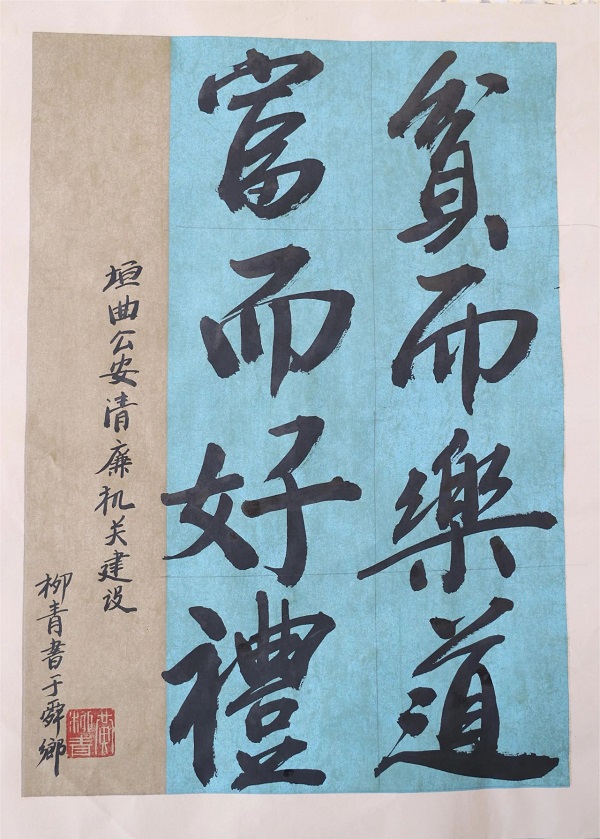 貧而樂道
富而好禮
垣曲公安清廉机关建设
柳青書于舜鄉